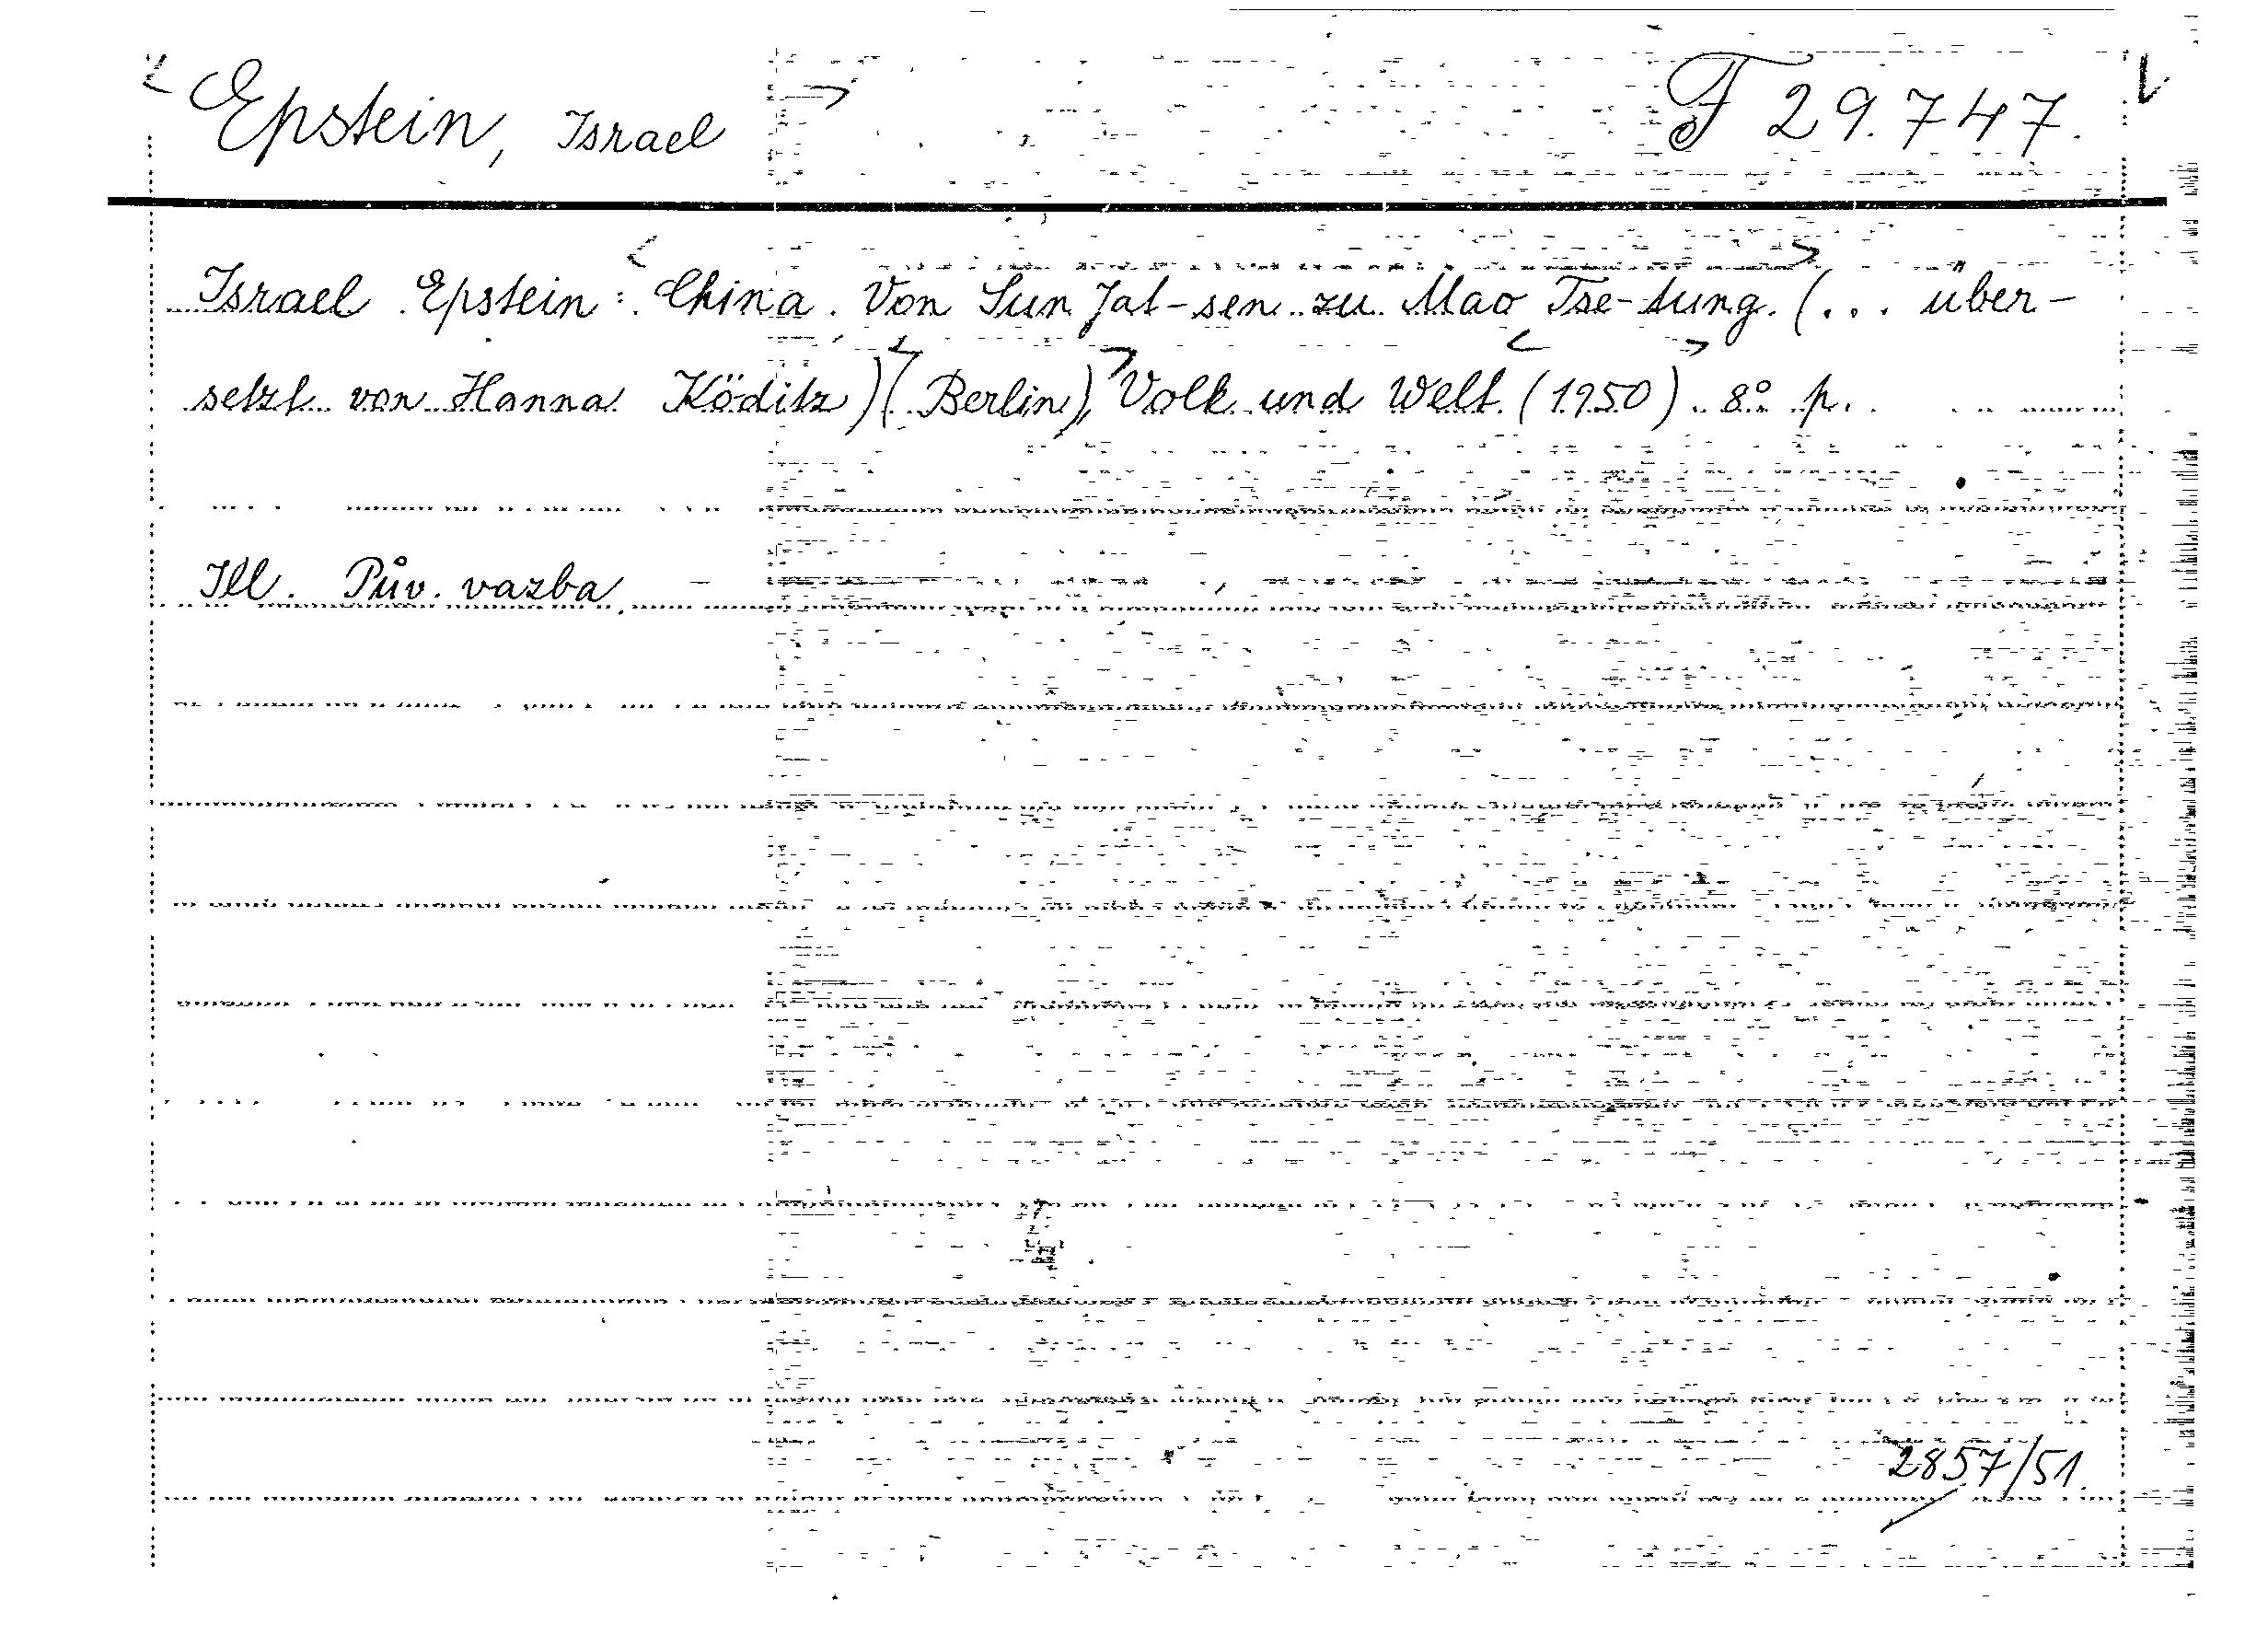 Epstein, Israel F 29.747.
Israel Epstein: China. Von Sun Jat-sen zu Mao Tse-tung. (... über-
setzt von Hanna Köditz) (Berlin), Volk und Welt (1950). 8° p.
Ill. Pův. vazba. -
2857/51.